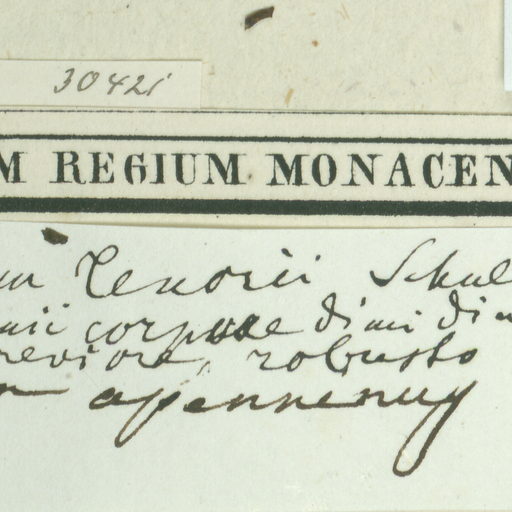 30421
M REGIUM MONACEN
Tenorii Schul
corpore dimi di
reviore, robusto
apennenug